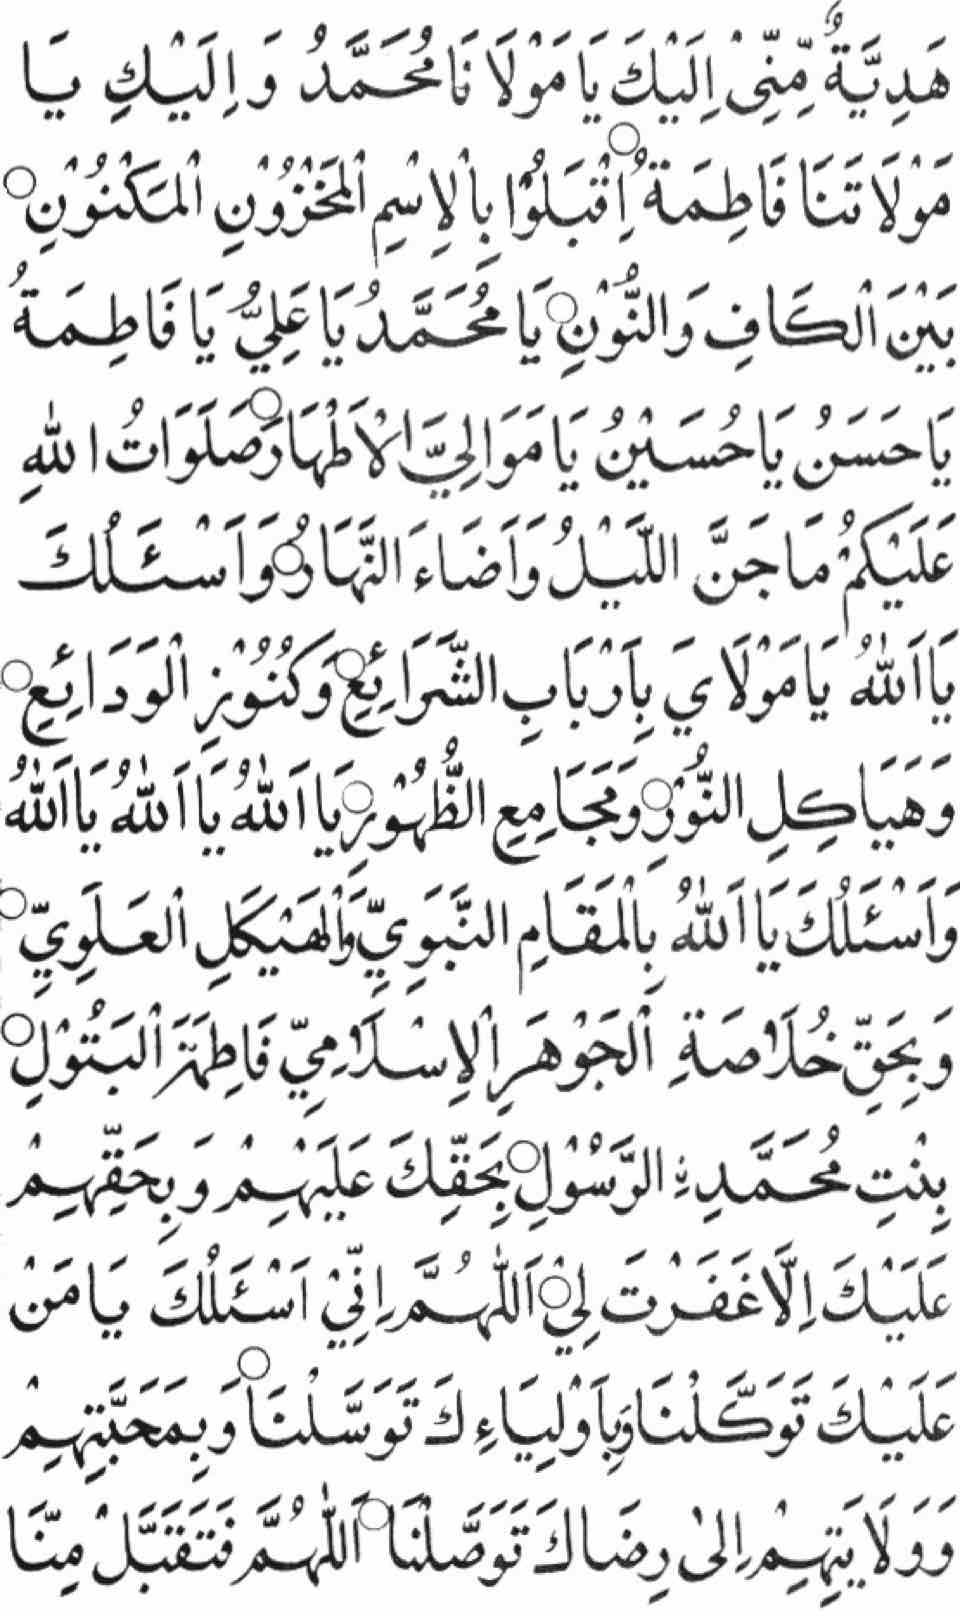 هَدِيَّةٌ مِّنِّيْ اِلَيْكَ يَا مَوْلَا نَا مُحَمَّدُ وَ اِلَيْكِ يَا
مَوْلَا تَنَا فَاطِمَةُ ○ اِقْبَلُوْا بِالْاِسْمِ الْمَخْزُوْنِ الْمَكْنُوْنِ ○
بَيْنَ الْكَافِ وَالنُّوْنِ ○ يَا مُحَمَّدُ يَا عَلِيُّ يَا فَاطِمَةُ
يَا حَسَنُ يَا حُسَيْنُ يَا مَوَالِيَّ الْاَطْهَارَ ○ صَلَوَاتُ اللهِ
عَلَيْكُمْ مَا جَنَّ اللَّيْلُ وَ اَضَاءَ النَّهَارُ ○ وَ اَسْئَلُكَ
يَا اَللهُ يَا مَوْلَايَ بِاَرْبَابِ الشَّرَائِعِ ○ وَ كُنُوْزِ الْوَدَائِعِ ○
وَ هَيَاكِلِ النُّوْرِ ○ وَ مَجَامِعِ الظُّهُوْرِ ○ يَا اَللهُ يَا اَللهُ يَا اَللهُ
وَ اَسْئَلُكَ يَا اَللهُ بِالْمَقَامِ النَّبَوِيِّ وَالْهَيْكَلِ الْعَلَوِيِّ ○
وَ بِحَقِّ خُلَاصَةِ الْجَوْهَرِ الْاِسْلَامِيِّ فَاطِمَةَ الْبَتُوْلِ ○
بِنْتِ مُحَمَّدِ ۨ الرَّسُوْلِ ○ بِحَقِّكَ عَلَيْهِمْ وَ بِحَقِّهِمْ
عَلَيْكَ اِلَّا غَفَرْتَ لِيْ ○ اَللّٰهُمَّ اِنِّيْ اَسْئَلُكَ يَا مَنْ
عَلَيْكَ تَوَكَّلْنَا وَبِاَوْلِيَاءِكَ تَوَسَّلْنَا ○ وَ بِمَحَبَّتِهِمْ
وَ وَلَايَتِهِمْ اِلىٰ رِضَاكَ تَوَصَّلْنَا ○ اَللّٰهُمَّ فَتَقَبَّلْ مِنَّا